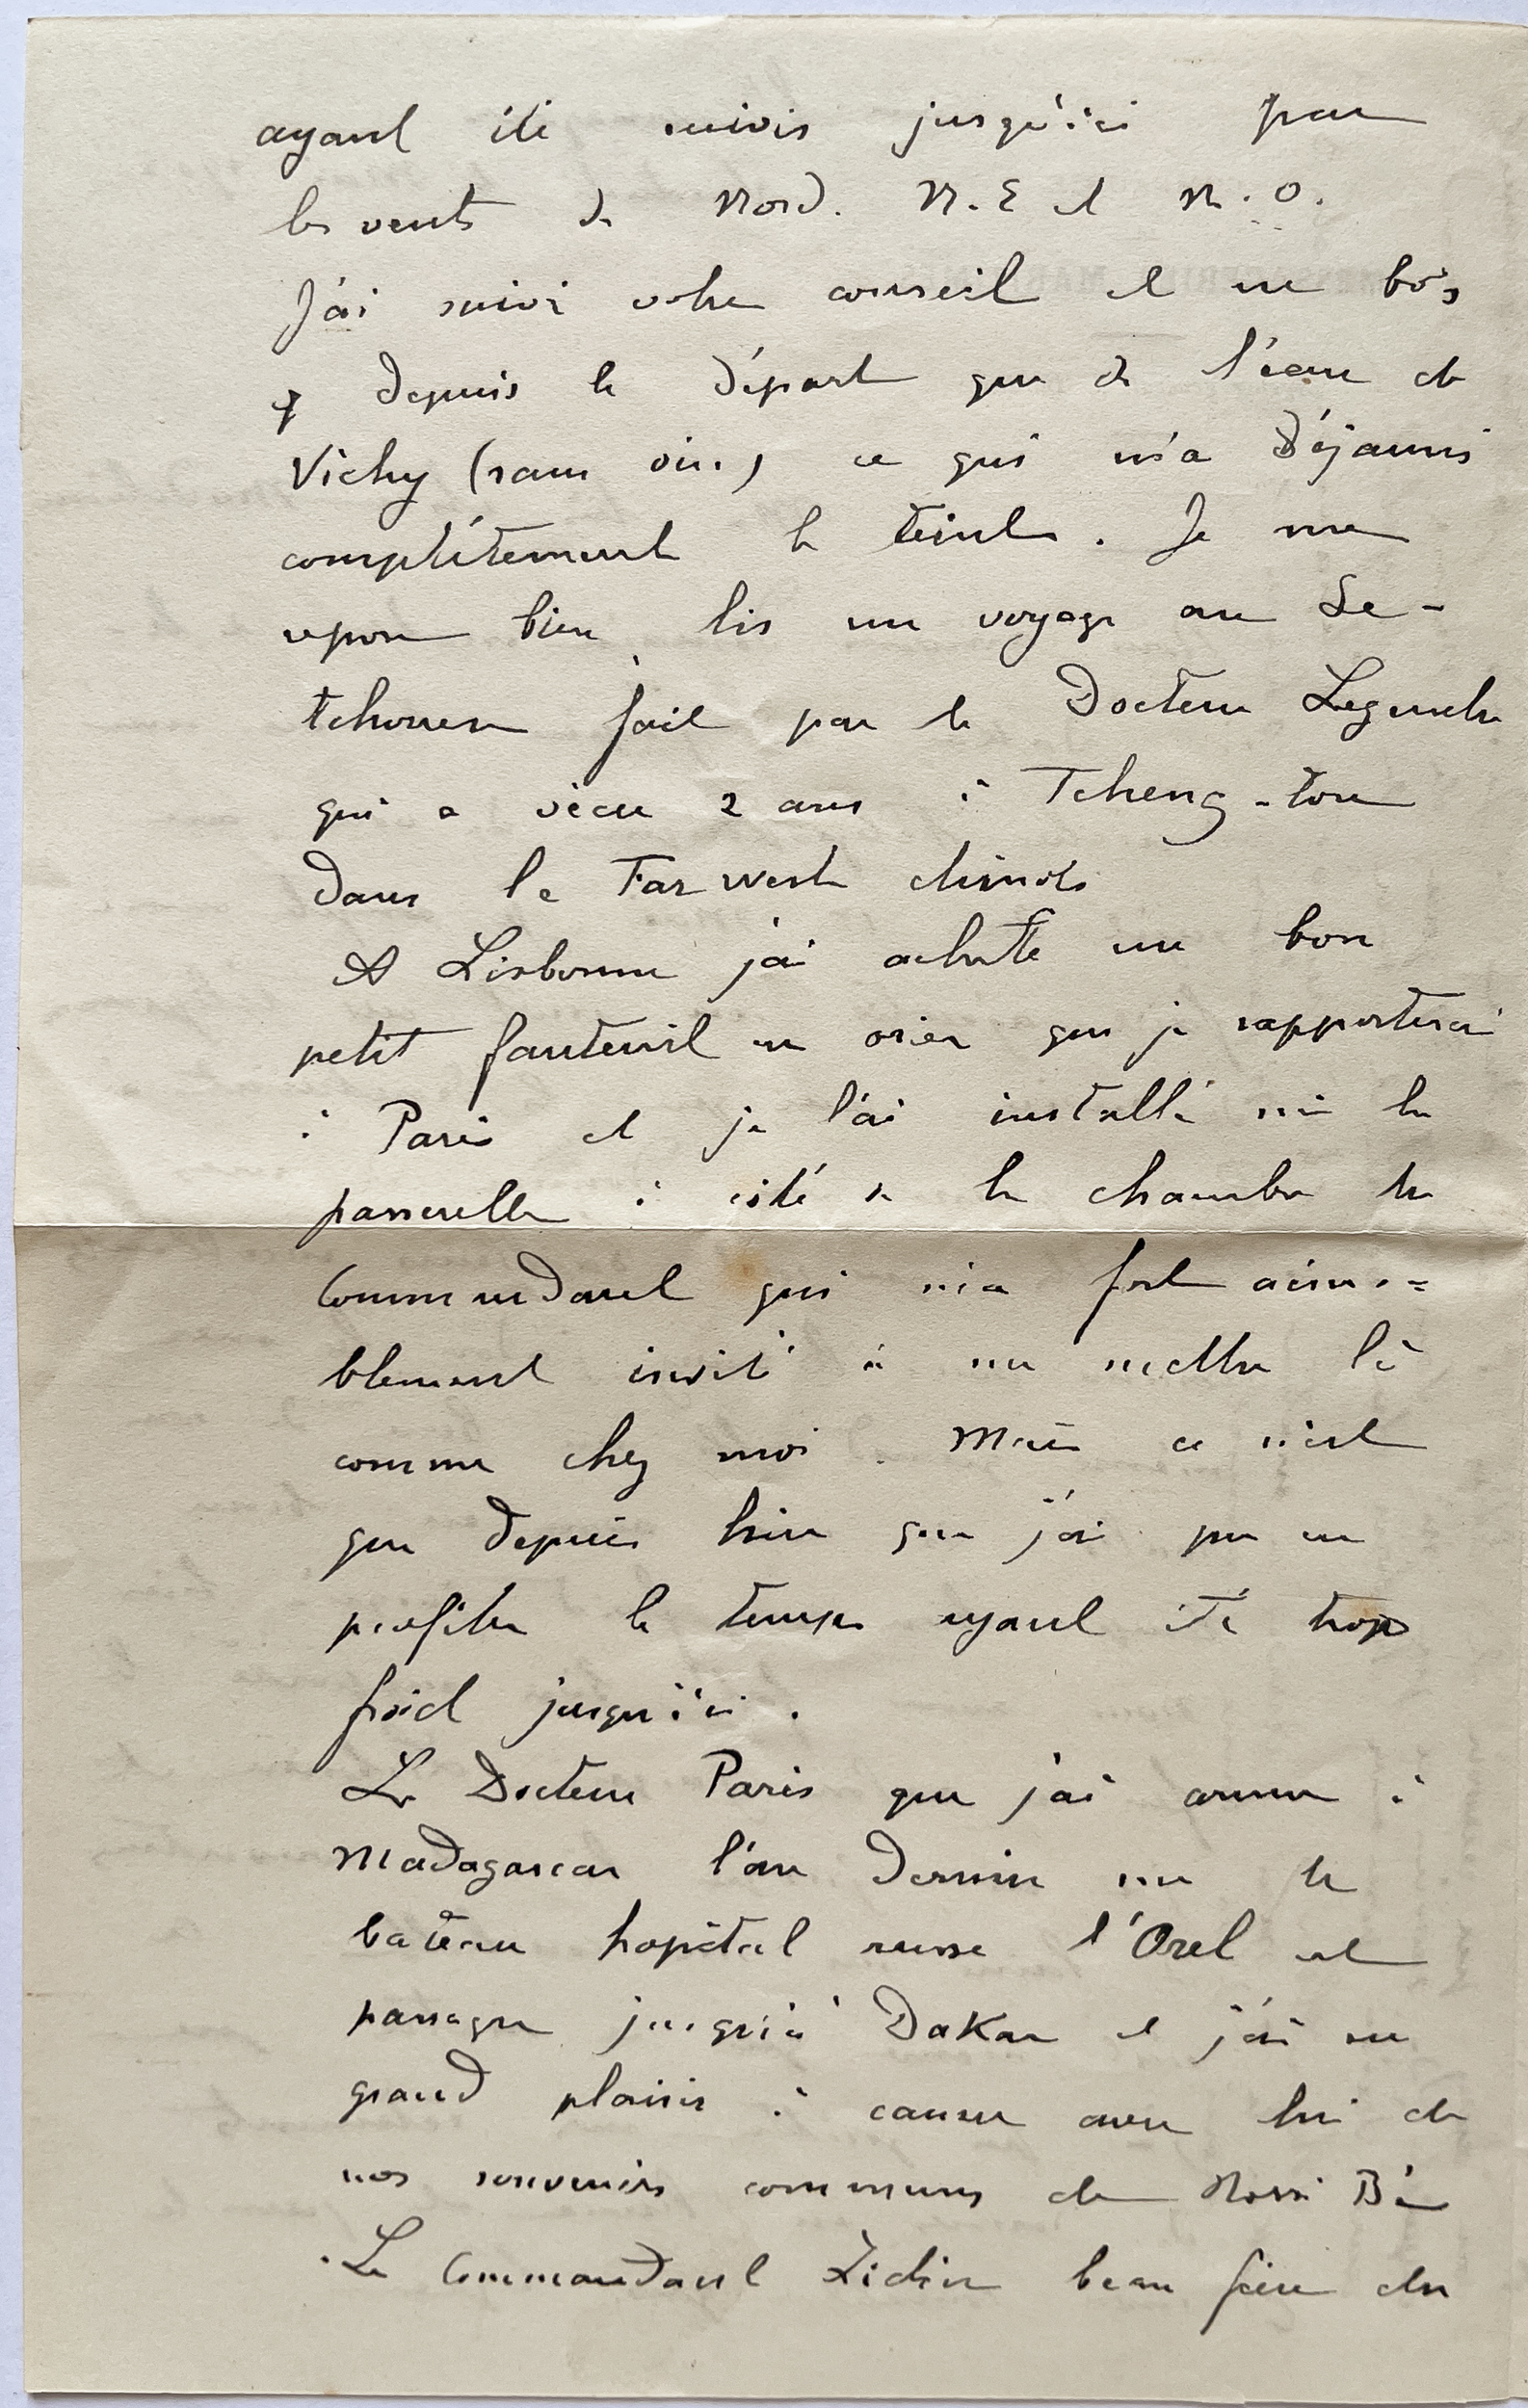 ayant été suivis jusqu'ici par
les vents de Nord. N.E et N.O.
J'ai suivi votre conseil et ne bois
depuis le départ que de l'eau de
Vichy (sans vin) ce qui m'a déjauni
complètement le teint. Je me
repose bien lis un voyage au Se-
tchouen fait par le Docteur Legendre
qui a vécu 2 ans à Tcheng-tou
dans le Far west chinois
A Lisbonne j'ai acheté un bon
petit fauteuil en osier que je rapporterai
à Paris et je l'ai installé sur la
passerelle à côté de la chambre du
Commandant qui m'a fort aima=
blement invité à me mettre là
comme chez moi. Mais ce n'est
que depuis hier que j'ai pu en
profiter le temps ayant été trop
froid jusqu'ici.
Le Docteur Paris que j'ai connu à
Madagascar l'an dernier sur le
bateau hopital russe l'Orel est
passager jusqu'à Dakar et j'ai eu
grand plaisir à causer avec lui de
nos souvenirs communs de Nossi Bé
Le Commandant beau frère du